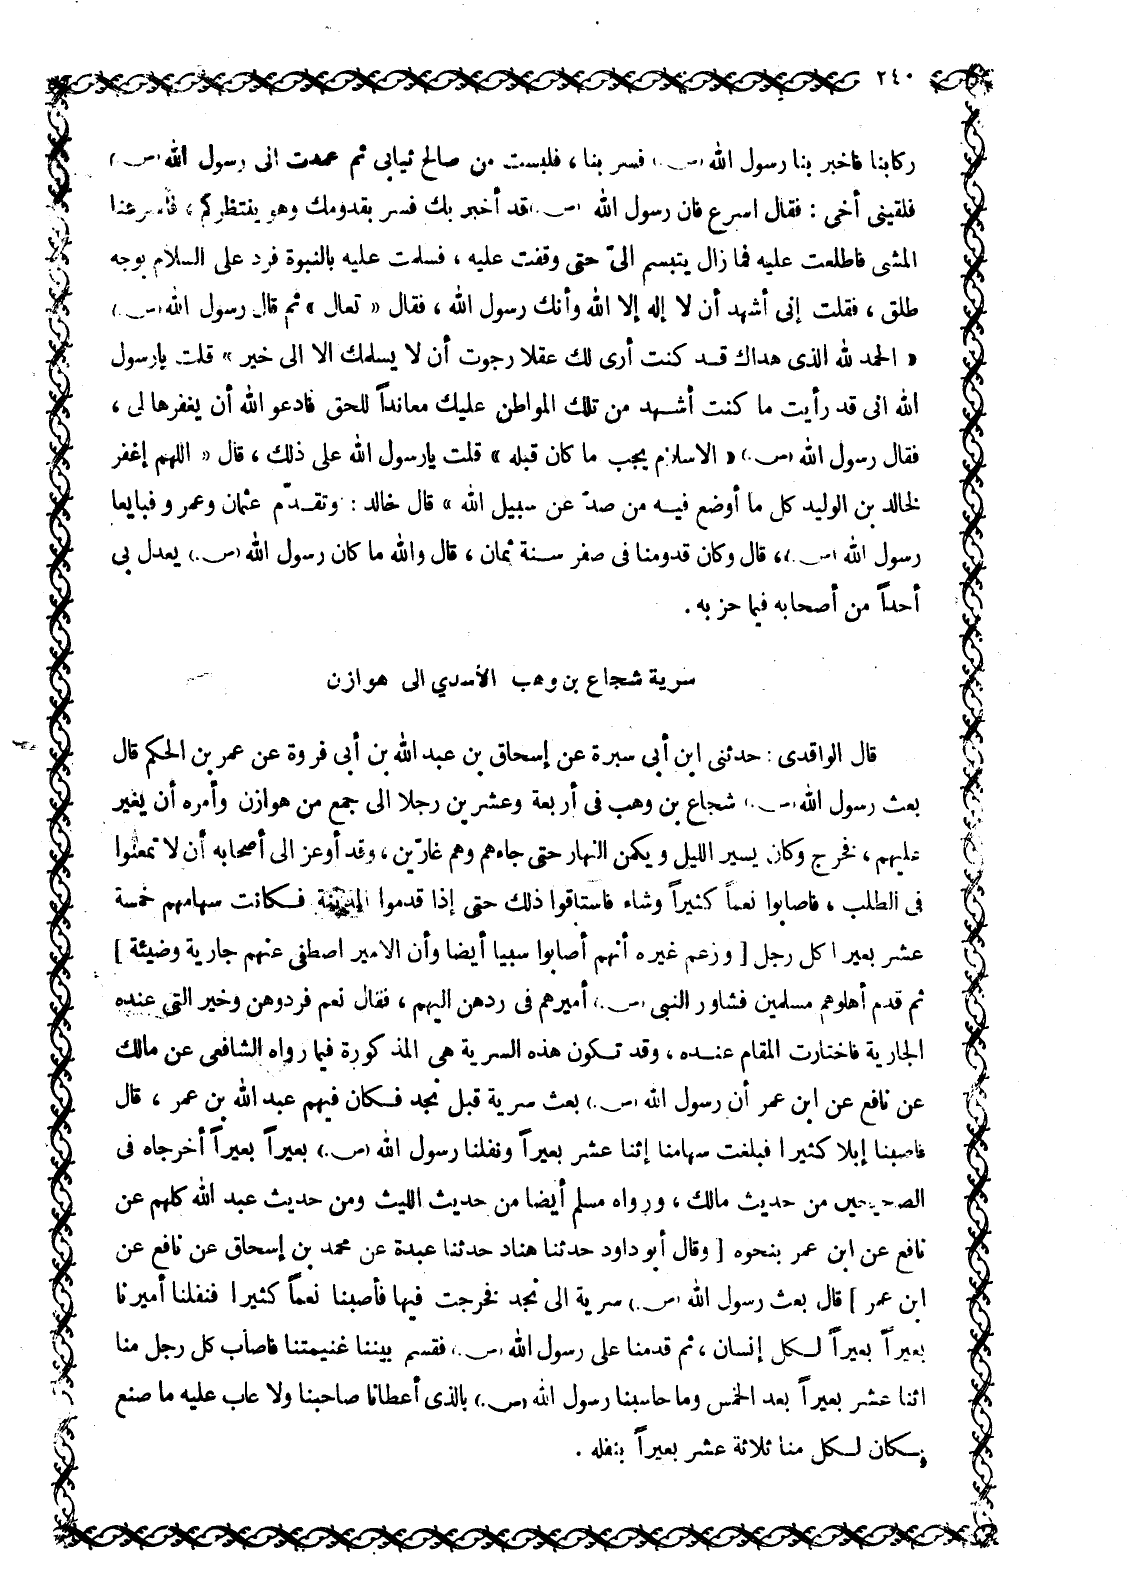 ٢٤٠
ركابنا فاخبر بنا رسول الله (ص.) فسر بنا ، فلبست من صالح ثيابى ثم عمدت الى رسول الله (ص.)
فلقينى أخى : فقال اسرع فان رسول الله (ص.) قد أخبر بك فسر بقدومك وهو ينتظركم ، فأسرعنا
المشى فاطلعت عليه فما زال يتبسم الىّ حتى وقفت عليه ، فسلمت عليه بالنبوة فرد على السلام بوجه
طلق ، فقلت إنى أشهد أن لا إله إلا الله وأنك رسول الله ، فقال « تعال » ثم قال رسول الله (ص.)
« الحمد لله الذى هداك قد كنت أرى لك عقلا رجوت أن لا يسلمك الا الى خير » قلت يارسول
الله انى قد رأيت ما كنت أشهد من تلك المواطن عليك معانداً للحق فادعو الله أن يغفرها لى ،
فقال رسول الله (ص.) « الاسلام يجب ما كان قبله » قلت يارسول الله على ذلك ، قال « اللهم إغفر
لخالد بن الوليد كل ما أوضع فيه من صدّ عن سبيل الله » قال خالد : وتقدّم عثمان وعمر و فبايعا
رسول الله (ص.) ، قال وكان قدومنا فى صفر سنة ثمان ، قال والله ما كان رسول الله (ص.) يعدل بى
أحداً من أصحابه فيما حز به .
سرية شجاع بن وهب الأسدي الى هوازن
قال الواقدى : حدثنى ابن أبى سبرة عن إسحاق بن عبد الله بن أبى فروة عن عمر بن الحكم قال
بعث رسول الله (ص.) شجاع بن وهب فى أربعة وعشرين رجلا الى جمع من هوازن وأمره أن يغير
عليهم ، فخرج وكان يسير الليل ويكمن النهار حتى جاءهم وهم غارّين ، وقد أوعز الى أصحابه أن لا تمعنوا
فى الطلب ، فاصابوا نعماً كثيراً وشاء فاستاقوا ذلك حتى إذا قدموا المدينة فكانت سهامهم خمسة
عشر بعيرا كل رجل [ وزعم غيره أنهم أصابوا سبيا أيضا وأن الامير اصطفى عنهم جارية وضيئة ]
ثم قدم أهلوهم مسلمين فشاور النبى (ص.) أميرهم فى ردهن اليهم ، فقال نعم فردوهن وخير التى عنده
الجارية فاختارت المقام عنده ، وقد تكون هذه السرية هى المذكورة فيما رواه الشافعى عن مالك
عن نافع عن ابن عمر أن رسول الله (ص.) بعث سرية قبل نجد فكان فيهم عبد الله بن عمر ، قال
فاصبنا إبلا كثيرا فبلغت سهامنا إثنا عشر بعيراً ونفلنا رسول الله (ص.) بعيراً بعيراً أخرجاه فى
الصحيحين من حديث مالك ، ورواه مسلم أيضا من حديث الليث ومن حديث عبد الله كلهم عن
نافع عن ابن عمر بنحوه [ وقال أبو داود حدثنا هناد حدثنا عبدة عن محمد بن إسحاق عن نافع عن
ابن عمر ] قال بعث رسول الله (ص.) سرية الى نجد فخرجت فيها فأصبنا نعماً كثيرا فنفلنا أميرنا
بعيراً بعيراً لكل إنسان ، ثم قدمنا على رسول الله (ص.) فقسم بيننا غنيمتنا فاصاب كل رجل منا
اثنا عشر بعيراً بعد الخمس وما حاسبنا رسول الله (ص.) بالذى أعطانا صاحبنا ولا عاب عليه ما صنع
فكان لكل منا ثلاثة عشر بعيراً بنفله .